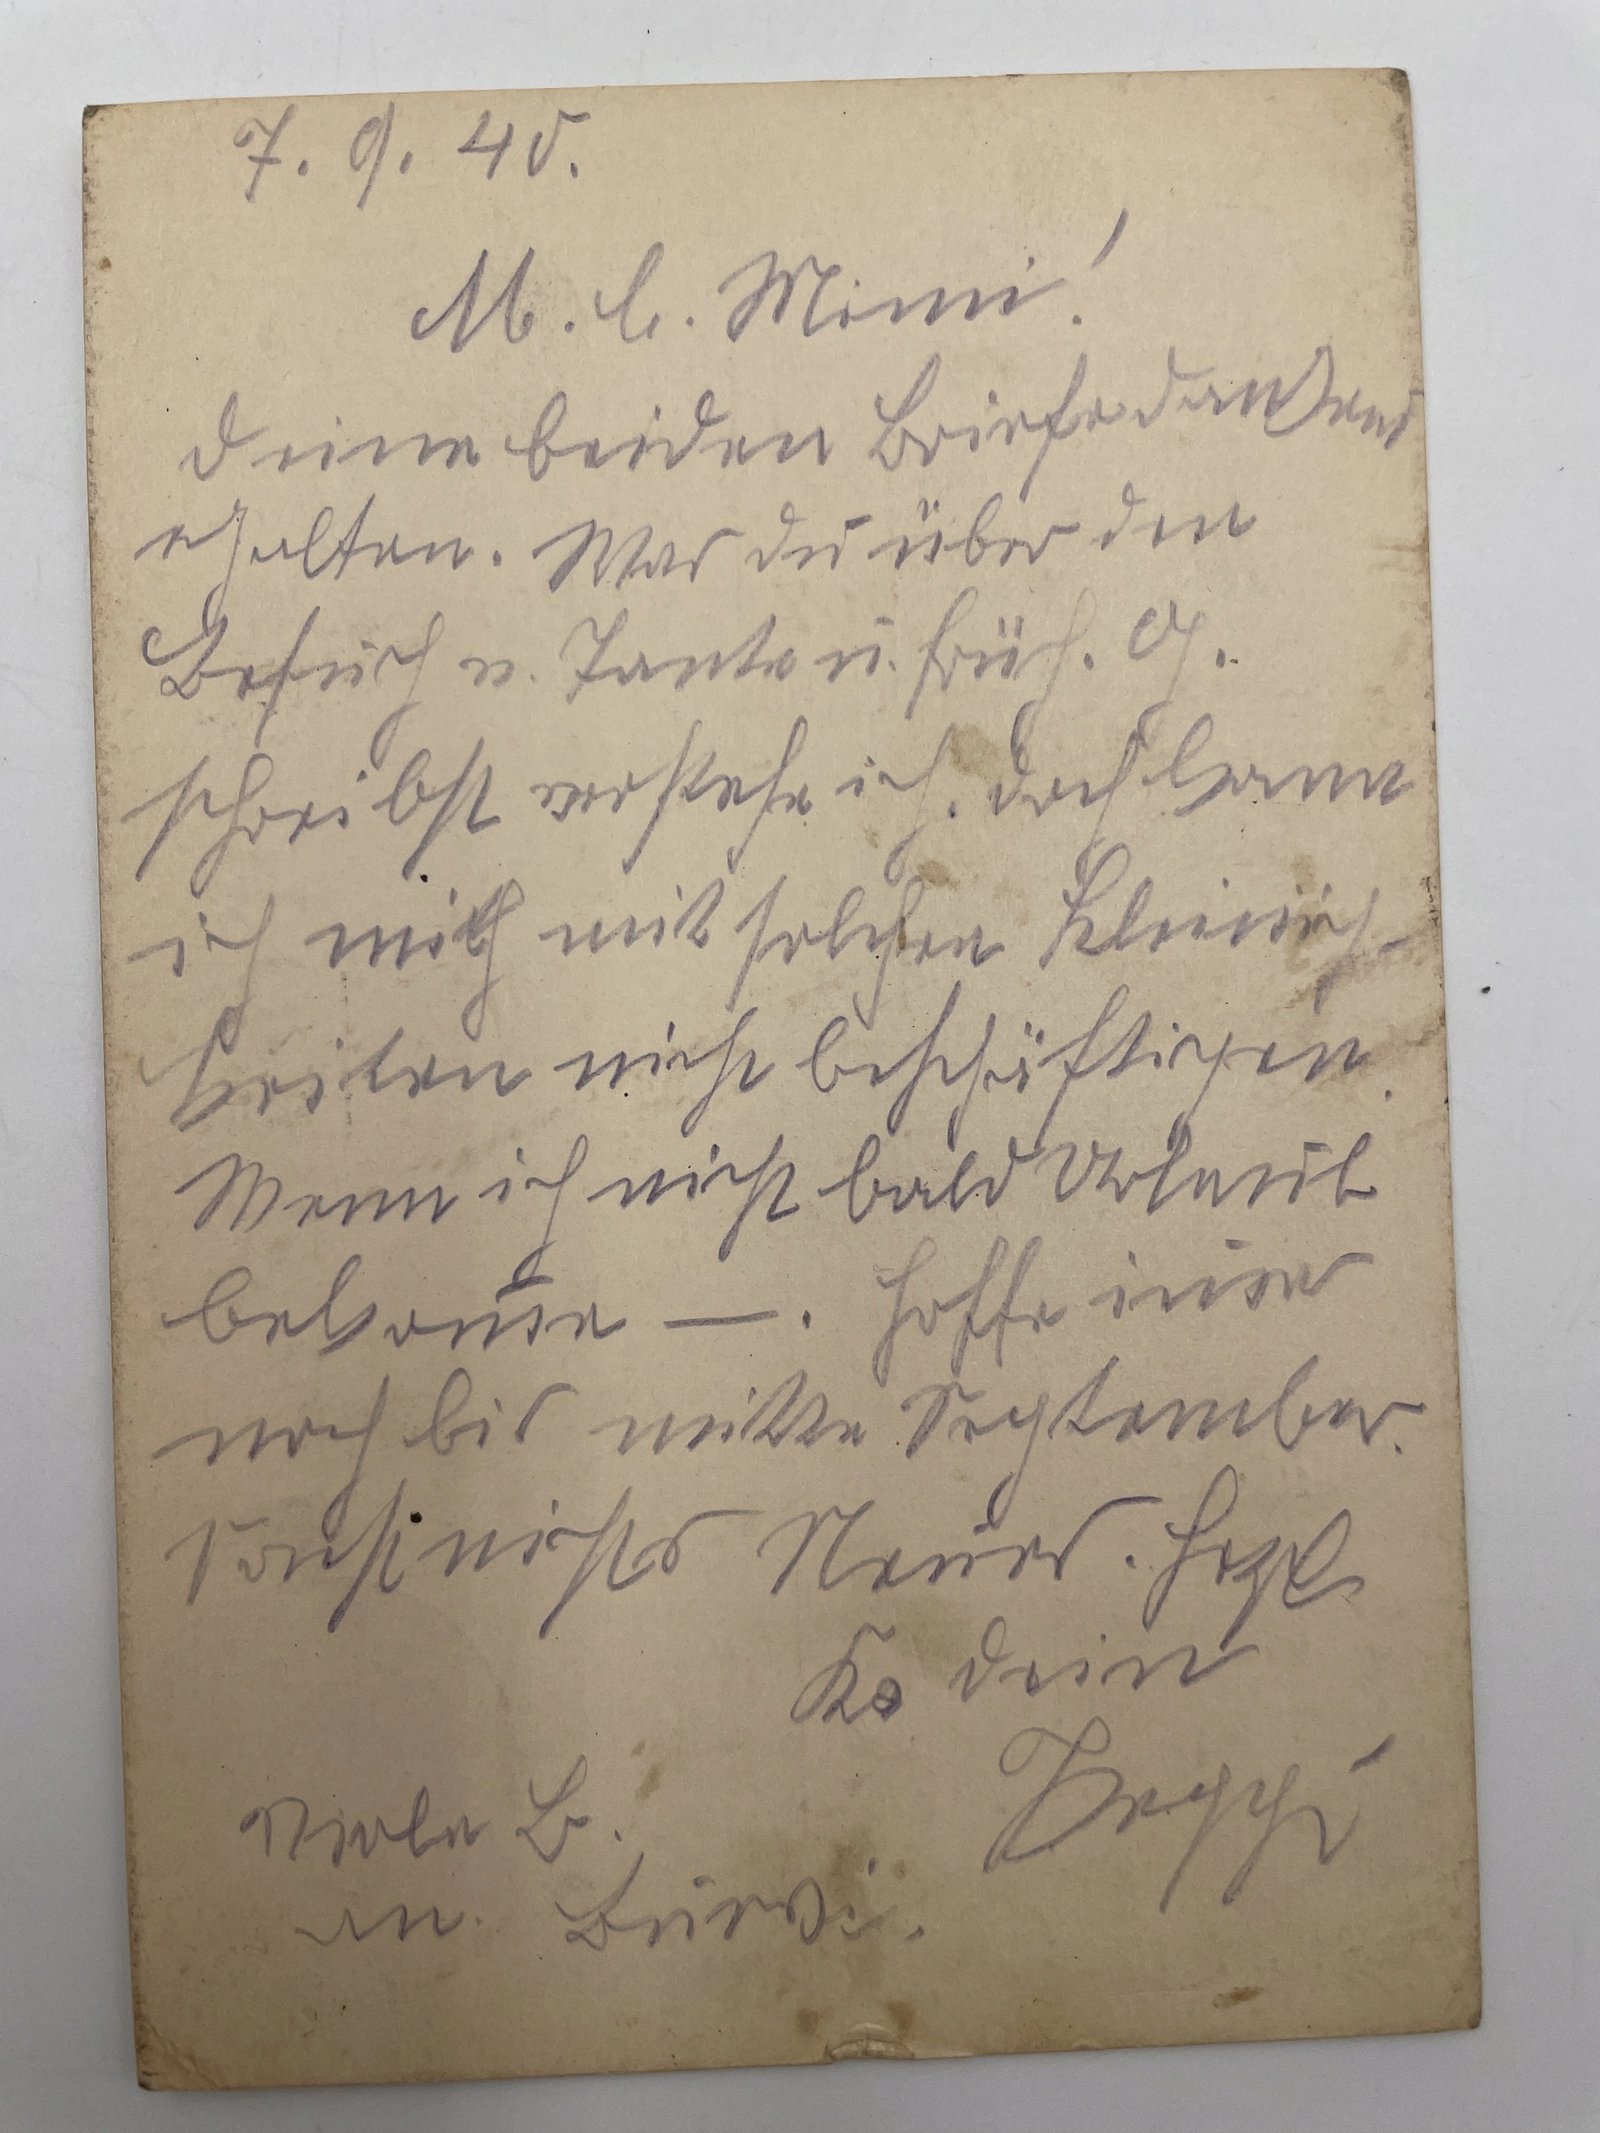 7. 9. 40.
M. l. Mimi!
Deine beiden Briefe dankend
erhalten. Was du über den
Besuch v. Tante u. früh. G.
schreibst verstehe ich. Doch kann
ich mich mit solchen Kleinig-
keiten nicht beschäftigen.
Wenn ich nicht bald Urlaub
bekome —. Hoffe imer
noch bis mitte September.
Sonst nichts Neues. Herzl.
Ks dein
Seppi
Viele B.
an